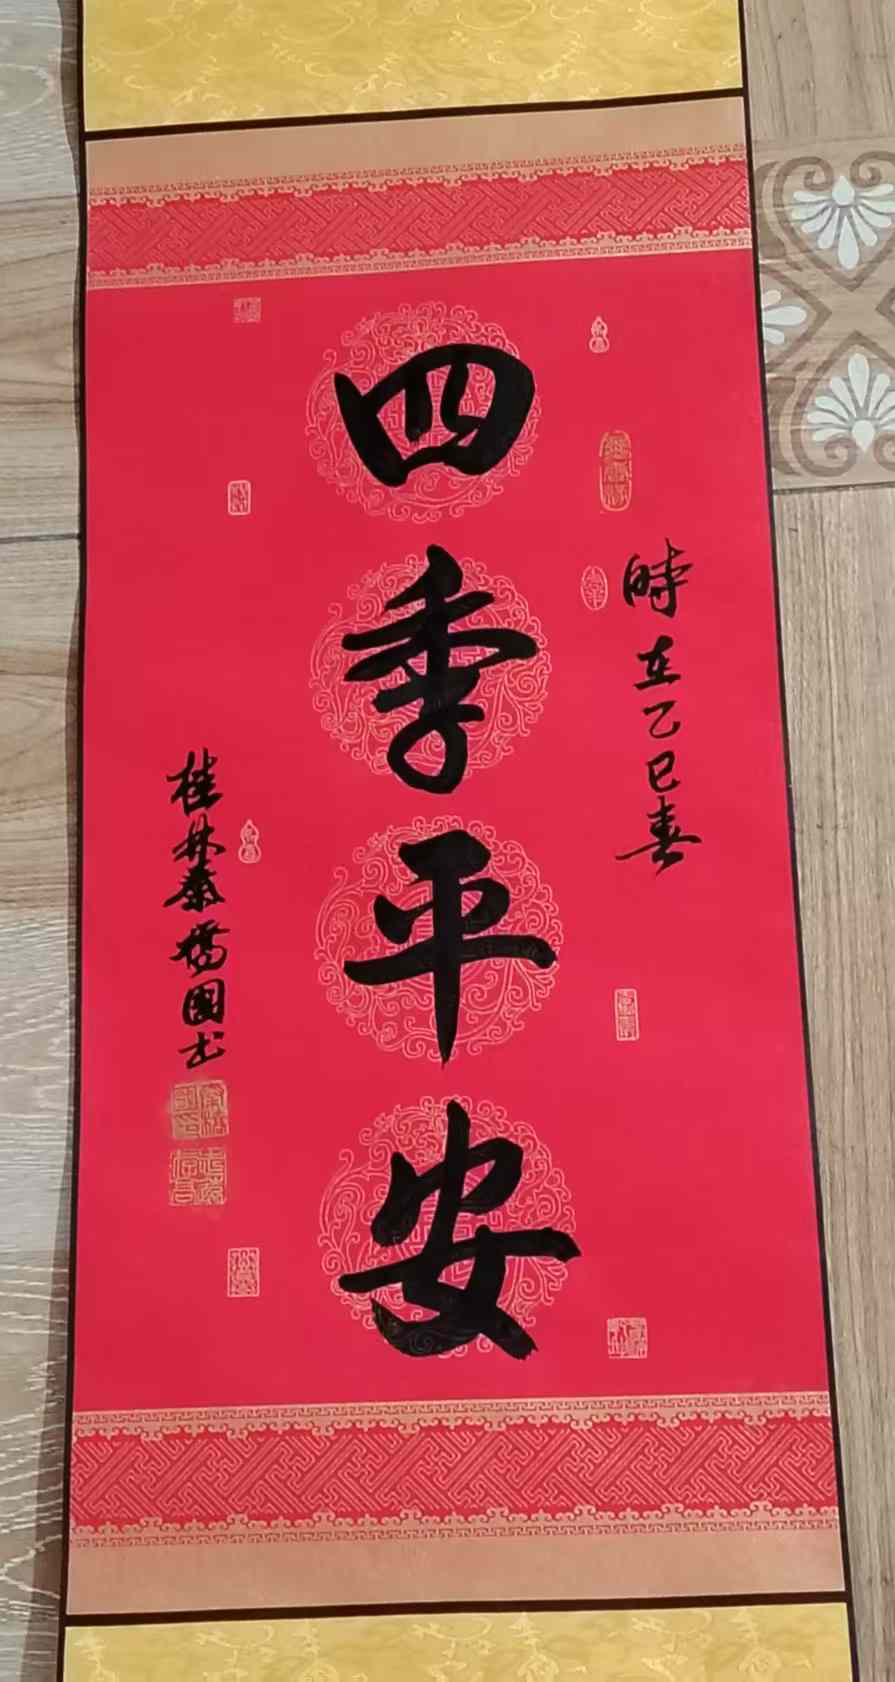 時在乙巳春
四季平安
桂林秦橋國书